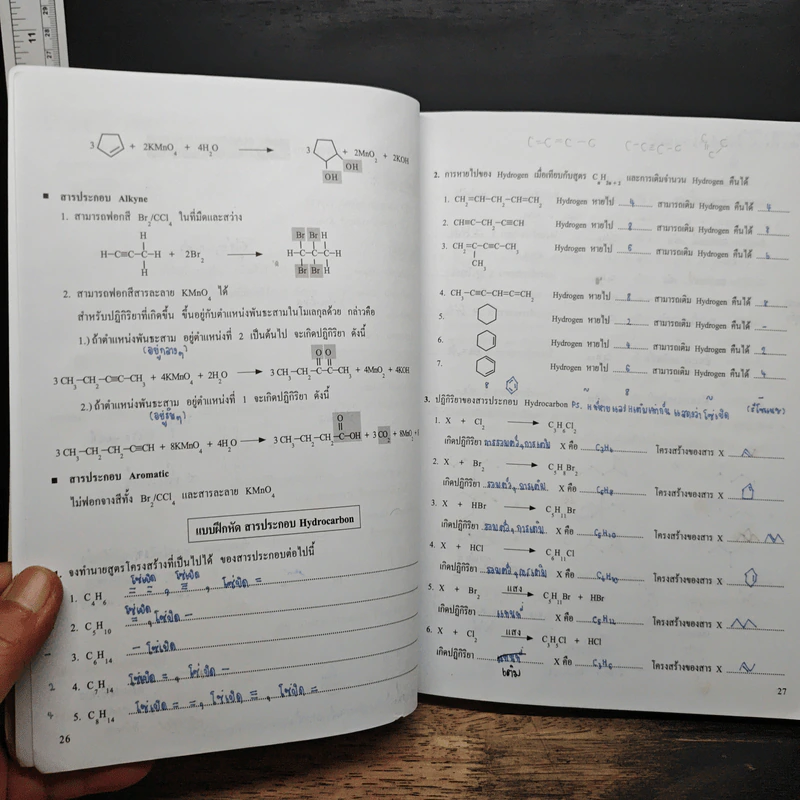 3 + 2KMnO4 + 4H2O → 3 + 2MnO2 + 2KOH
OH
OH
■ สารประกอบ Alkyne
1. สามารถฟอกสี Br2/CCl4 ในที่มืดและสว่าง
H
H–C≡C–C–H + 2Br2 →
H
Br Br H
H–C–C–C–H
Br Br H
2. สามารถฟอกสีสารละลาย KMnO4 ได้
สำหรับปฏิกิริยาที่เกิดขึ้น ขึ้นอยู่กับตำแหน่งพันธะสามในโมเลกุลด้วย กล่าวคือ
1.) ถ้าตำแหน่งพันธะสาม อยู่ตำแหน่งที่ 2 เป็นต้นไป จะเกิดปฏิกิริยา ดังนี้
(อยู่กลางๆ)
O O
3 CH3–CH2–C≡C–CH3 + 4KMnO4 + 2H2O → 3 CH3–CH2–C–C–CH3 + 4MnO2 + 4KOH
2.) ถ้าตำแหน่งพันธะสาม อยู่ตำแหน่งที่ 1 จะเกิดปฏิกิริยา ดังนี้
(อยู่ริมๆ)
O
3 CH3–CH2–CH2–C≡CH + 8KMnO4 + 4H2O → 3 CH3–CH2–CH2–C–OH + 3 CO2 + 8MnO2 +
■ สารประกอบ Aromatic
ไม่ฟอกจางสีทั้ง Br2/CCl4 และสารละลาย KMnO4
แบบฝึกหัด สารประกอบ Hydrocarbon
จงทำนายสูตรโครงสร้างที่เป็นไปได้ ของสารประกอบต่อไปนี้
1. C4H6 โซ่เปิด = =, โซ่เปิด ≡, โซ่ปิด =
2. C5H10 โซ่เปิด =, โซ่ปิด –
3. C6H14 – โซ่เปิด
4. C7H14 โซ่เปิด =, โซ่ปิด –
5. C8H14 โซ่เปิด = =, โซ่เปิด ≡, โซ่ปิด =
26
2. การหายไปของ Hydrogen เมื่อเทียบกับสูตร CnH2n+2 และการเติมจำนวน Hydrogen คืนได้
1. CH2=CH–CH2–CH=CH2 Hydrogen หายไป 4 สามารถเติม Hydrogen คืนได้ 4
2. CH≡C–CH2–C≡CH Hydrogen หายไป 8 สามารถเติม Hydrogen คืนได้ 8
3. CH2=C–C≡C–CH3 Hydrogen หายไป 6 สามารถเติม Hydrogen คืนได้ 6
CH3
4. CH3–C≡C–CH=C=CH2 Hydrogen หายไป 8 สามารถเติม Hydrogen คืนได้ 8
5. Hydrogen หายไป 2 สามารถเติม Hydrogen คืนได้ –
6. Hydrogen หายไป 4 สามารถเติม Hydrogen คืนได้ 2
7. Hydrogen หายไป 6 สามารถเติม Hydrogen คืนได้ 4
8
3. ปฏิกิริยาของสารประกอบ Hydrocarbon
1. X + Cl2 → C3H6Cl2
เกิดปฏิกิริยา การรวมตัว, การเติม X คือ C3H6 โครงสร้างของสาร X
2. X + Br2 → C5H8Br2
เกิดปฏิกิริยา รวมตัว, การเติม X คือ C5H8 โครงสร้างของสาร X
3. X + HBr → C5H11Br
เกิดปฏิกิริยา รวมตัว, การเติม X คือ C5H10 โครงสร้างของสาร X
4. X + HCl → C6H11Cl
เกิดปฏิกิริยา รวมตัว, การเติม X คือ C6H10 โครงสร้างของสาร X
5. X + Br2 แสง → C5H11Br + HBr
เกิดปฏิกิริยา แทนที่ X คือ C5H12 โครงสร้างของสาร X
6. X + Cl2 แสง → C3H5Cl + HCl
เกิดปฏิกิริยา X คือ C3H6 โครงสร้างของสาร X
เติม
27